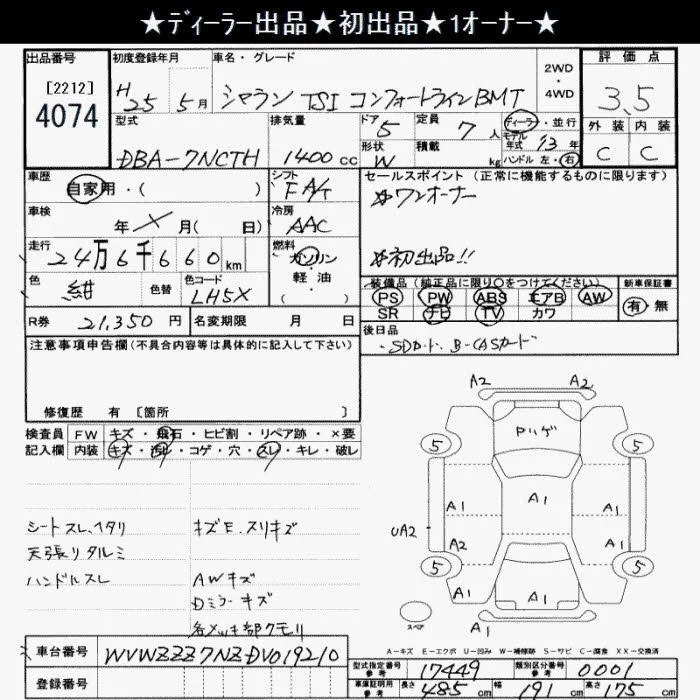 ★ディーラー出品★初出品★1オーナー★
出品番号 初度登録年月 車名・グレード 2WD 評価点
[2212] H 25年 5月 シャラン TSI コンフォートラインBMT ・ 3.5
4074 4WD
型式 排気量 ドア 定員 ディーラー・並行 外装 内装
DBA-7NCTH 1400cc 5 7人 モデル年式 13年 C C
形状 W 積載 kg ハンドル 左・右
車歴 シフト セールスポイント (正常に機能するものに限ります)
自家用・( ) FA/T ☆ワンオーナー
車検 冷房
年 X 月( 日) AAC
走行 燃料 ☆初出品!!
24万6千660km ガソリン
色 色替 色コード 軽・油 装備品 (純正品に限り○をつけてください) 新車保証書
紺 LH5X ( ) PS PW ABS エアB AW 有・無
SR ナビ TV カワ
R券 21,350円 名変期限 月 日 後日品
注意事項申告欄(不具合内容等は具体的に記入して下さい) ・SDカード、B-CASカード
修復歴 有 [箇所 ]
検査員 FW キズ・飛石・ヒビ割・リペア跡・×要
記入欄 内装 キズ・汚レ・コゲ・穴・スレ・キレ・破レ
シートスレ、ヘタリ キズE.スリキズ
天張りタルミ
ハンドルスレ AWキズ
Dミラーキズ
各メッキ部クモリ
A2 A2
Pハゲ
5 5
A1 A1 A1
A1
UA2 A2
5 5
A1 A1
スペア A1
A-キズ E-エクボ U-凹み W-補修跡 S-サビ C-腐食 XX-交換済
車台番号 WVWZZZ7NZDV019210 型式指定番号 参考 17449 類別区分番号 参考 0001
登録番号 車庫証明用 参考 長さ 485cm 幅 191cm 高さ 175cm